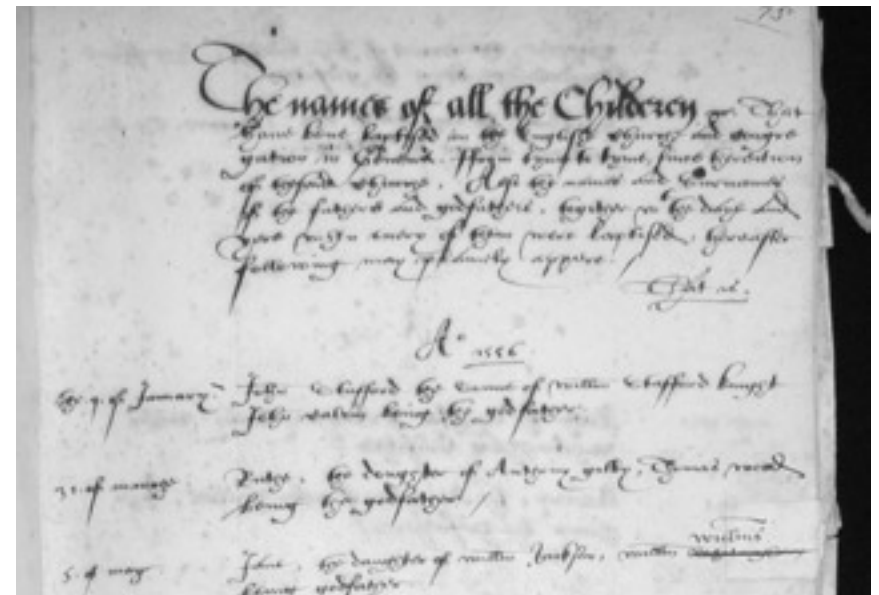 The names of all the Childeren That
have bene baptised in the English churche and congre
gation in Geneva. ffrom tyme to tyme, sines
of the churche. Also the names and Surnames
of the fathers and godfathers, together wt the daye and
yere in every of them were baptised, hereafter
following may playnely appere /
That is.
Ao 1556
the 4 of January John Stafford the sonne of willm Stafford knight
John Calvin being the godfather.
of marche the daughter of Anthony gilby, Thomas wood
being the godfather /
5. of may Jane, the daughter of willm Jackson, willm williams
being godfather